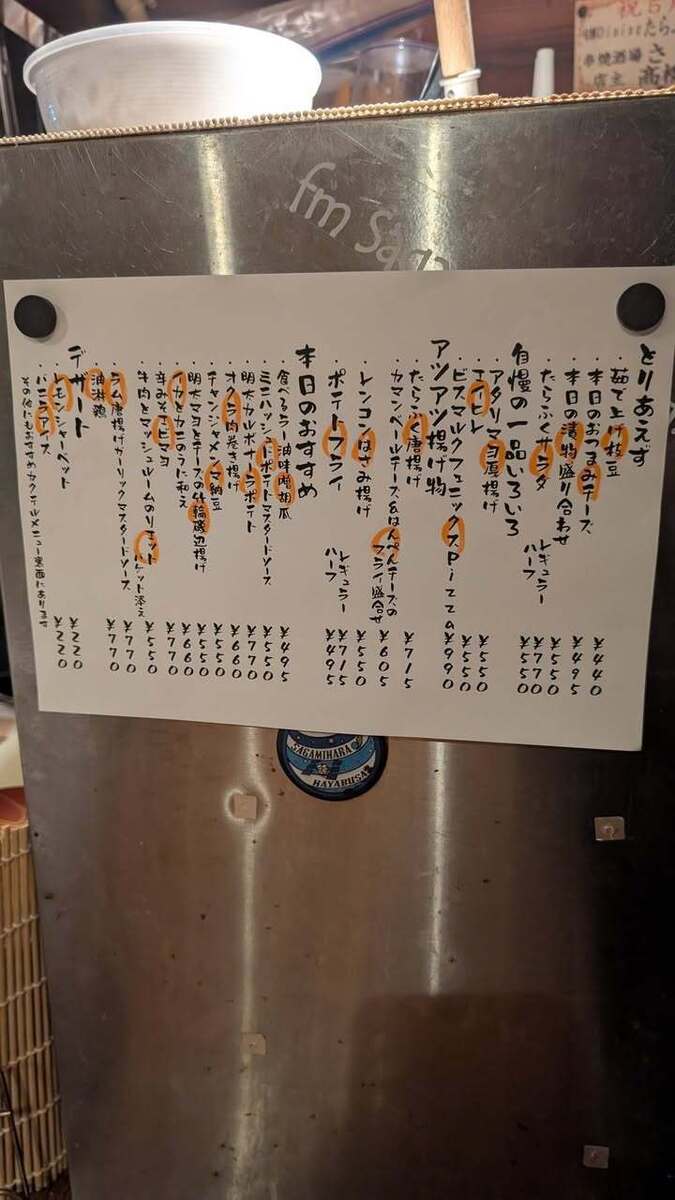 fm Saga
とりあえず
・茹で上げ枝豆 ¥440
・本日のおつまみチーズ ¥495
・本日の漬物盛り合わせ ¥550
・たらふくサラダ レギュラー ¥770
ハーフ ¥550
自慢の一品いろいろ
・アタリマヨ唐揚げ ¥550
・エイヒレ ¥550
・ビスマルクフェニックスPizza ¥990
アツアツ揚げ物
・たらふく唐揚げ ¥715
・カマンベールチーズ&はんぺんチーズの
フライ盛合せ ¥605
・レンコンはさみ揚げ ¥550
・ポテトフライ レギュラー ¥715
ハーフ ¥495
本日のおすすめ
・食べるラー油味噌胡瓜 ¥495
・ミニハッシュドポテトマスタードソース ¥550
・明太カルボナーラポテト ¥770
・オクラ肉巻き揚げ ¥660
・チャンジャメンマ納豆 ¥550
・明太マヨとチーズの竹輪磯辺揚げ ¥550
・イカとカニのウニ和え ¥660
・辛みそエビマヨ ¥770
・牛肉とマッシュルームのリエット
バゲット添え ¥550
・ラム唐揚げガーリックマスタードソース ¥770
・油淋鶏 ¥770
デザート
・レモンシャーベット ¥220
・バニラアイス ¥220
その他にもおすすめカクテルメニュー裏面にあります
SAGAMIHARA
HAYABUSA2